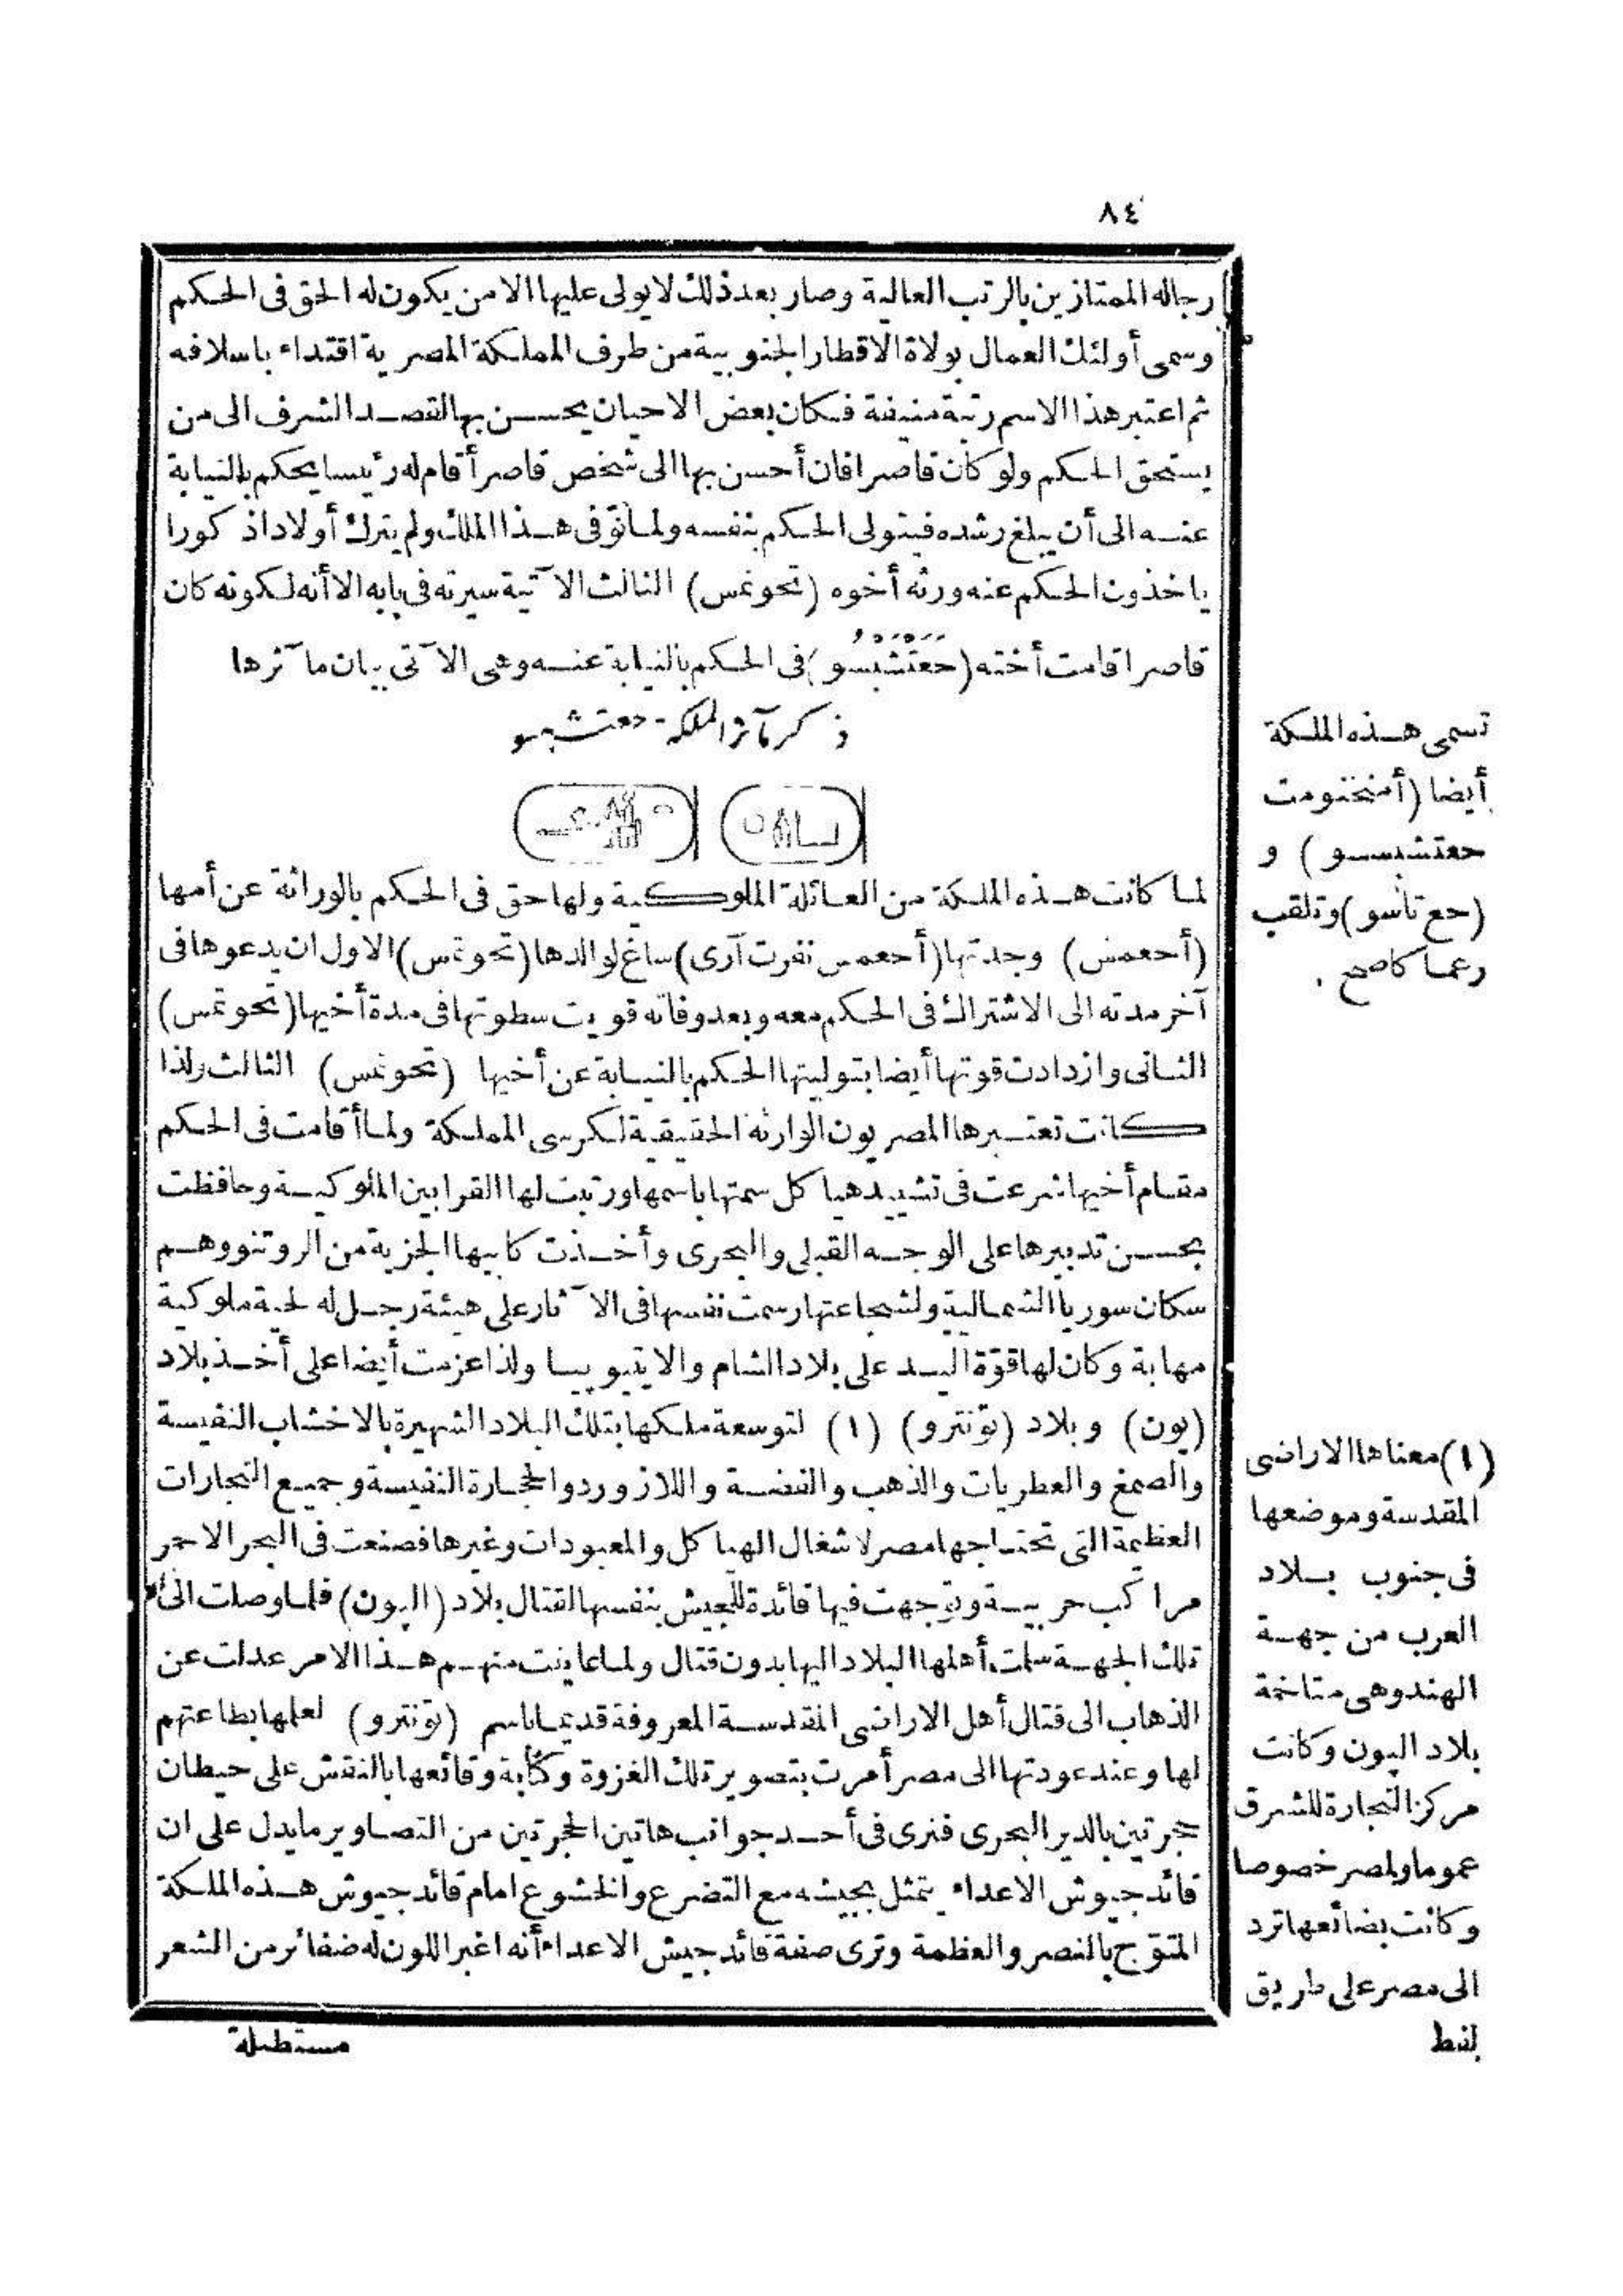 ٨٤
رجاله الممتازين بالرتب العالية وصار بعد ذلك لا يولى عليها الا من يكون له الحق فى الحكم
وسمى أولئك العمال بولاة الاقطار الجنوبية من طرف المملكة المصرية اقتداء باسلافه
ثم اعتبر هذا الاسم رتبة منيفة فكان بعض الاحيان يحسن بها القصد الشرف الى من
يستحق الحكم ولو كان قاصرا فان أحسن بها الى شخص قاصر أقام له رئيسا يحكم بالنيابة
عنه الى أن يبلغ رشده فيتولى الحكم بنفسه ولما توفى هذا الملك ولم يترك أولادا ذكورا
ياخذون الحكم عنه ورثه أخوه (تحوتمس) الثالث الآتية سيرته فى بابه الا أنه لكونه كان
قاصرا قامت أخته (حَعَتْشَبْسُو) فى الحكم بالنيابة عنه وهى الآتى بيان مآثرها
ذكر مآثر الملكة حعتشبسو
لما كانت هذه الملكة من العائلة الملوكية ولها حق فى الحكم بالوراثة عن أمها
(أحعمس) وجدتها (أحعمس نفرت آرى) ساغ لوالدها (تحوتمس) الاول ان يدعوها فى
آخر مدته الى الاشتراك فى الحكم معه وبعد وفاته قويت سطوتها فى مدة أخيها (تحوتمس)
الثانى وازدادت قوتها أيضا بتوليتها الحكم بالنيابة عن أخيها (تحوتمس) الثالث ولذا
كانت تعتبرها المصريون الوارثة الحقيقية لكرسى المملكة ولما أقامت فى الحكم
مقام أخيها شرعت فى تشييد هياكل سمتها باسمها ورتبت لها القرابين الملوكية وحافظت
بحسن تدبيرها على الوجه القبلى والبحرى وأخذت كابيها الجزية من الروتنو وهم
سكان سوريا الشمالية ولشجاعتها رسمت نفسها فى الآثار على هيئة رجل له لحية ملوكية
مهابة وكان لها قوّة اليد على بلاد الشام والايتيوبيا ولذا عزمت أيضا على أخذ بلاد
(پون) وبلاد (توّنترو) (١) لتوسعة ملكها بتلك البلاد الشهيرة بالاخشاب النفيسة
والصمغ والعطريات والذهب والفضة واللازورد والحجارة النفيسة وجميع التجارات
العظيمة التى تحتاجها مصر لاشغال الهياكل والمعبودات وغيرها فصنعت فى البحر الاحمر
مراكب حربية وتوجهت فيها قائدة للجيش بنفسها لقتال بلاد (الپون) فلما وصلت الى
تلك الجهة سلمت أهلها البلاد اليها بدون قتال ولما عاينت منهم هذا الامر عدلت عن
الذهاب الى قتال أهل الاراضى المقدسة المعروفة قديما باسم (توّنترو) لعلمها بطاعتهم
لها وعند عودتها الى مصر أمرت بتصوير تلك الغزوة وكتابة وقائعها بالنقش على حيطان
حجرتين بالدير البحرى فنرى فى أحد جوانب هاتين الحجرتين من التصاوير ما يدل على ان
قائد جيوش الاعداء يتمثل بجيشه مع التضرع والخشوع امام قائد جيوش هذه الملكة
المتوّج بالنصر والعظمة وترى صفة قائد جيش الاعداء أنه اغبر اللون له ضفائر من الشعر
مستطيلة
تسمى هذه الملكة
أيضا (أمنخنومت
حعتشبسو) و
(حع تاشو) وتلقب
رعما كا صحح .
(١) معناها الاراضى
المقدسة وموضعها
فى جنوب بلاد
العرب من جهة
الهند وهى متاخمة
بلاد الپون وكانت
مركز التجارة للشرق
عموما ولمصر خصوصا
وكانت بضائعها ترد
الى مصر على طريق
قفط